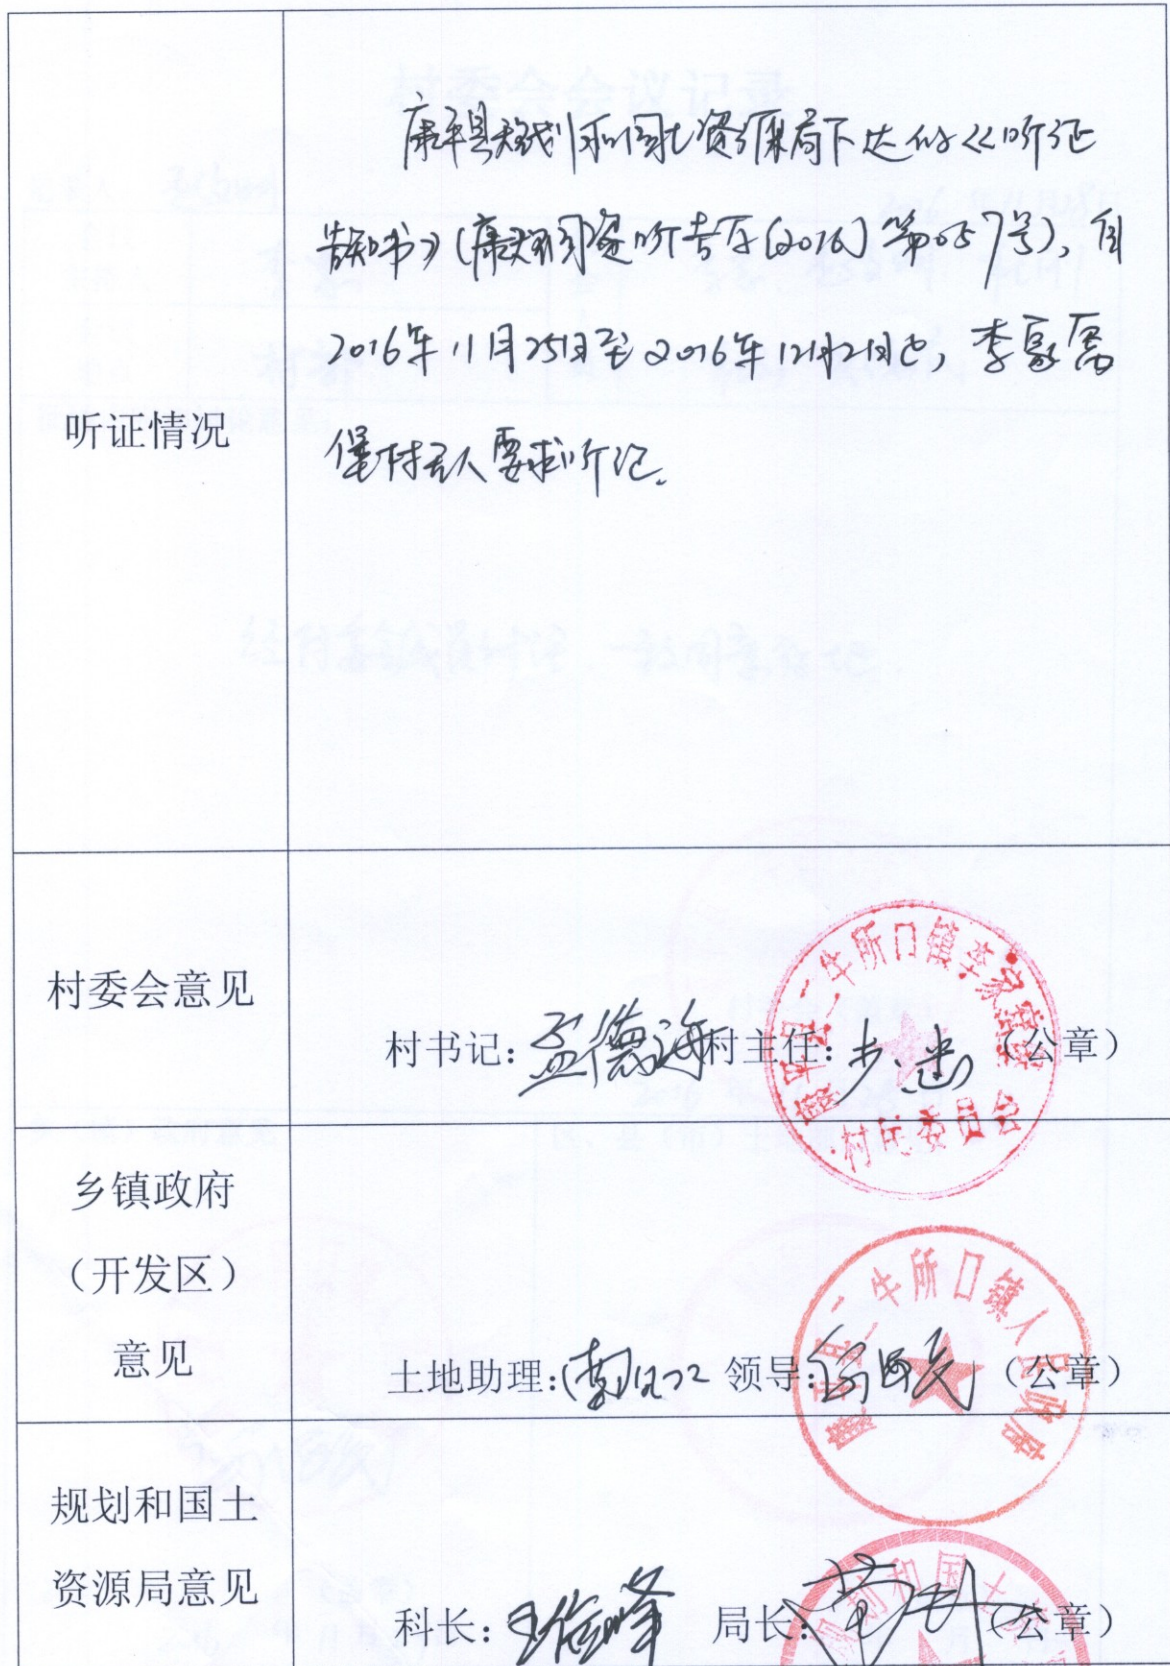 康平县规划和国土资源局下达的《听证
告知书》(康规国资听告字(2016)第057号),自
2016年11月25日至2016年12月2日止,李家窝
堡村无人要求听证。
听证情况
村委会意见
村书记:孟德海 村主任: (公章)
康平县二牛所口镇李家窝堡
村民委员会
乡镇政府
(开发区)
意见
土地助理: 领导: (公章)
康平县二牛所口镇人民政府
规划和国土
资源局意见
科长: 局长: (公章)
规划和国土